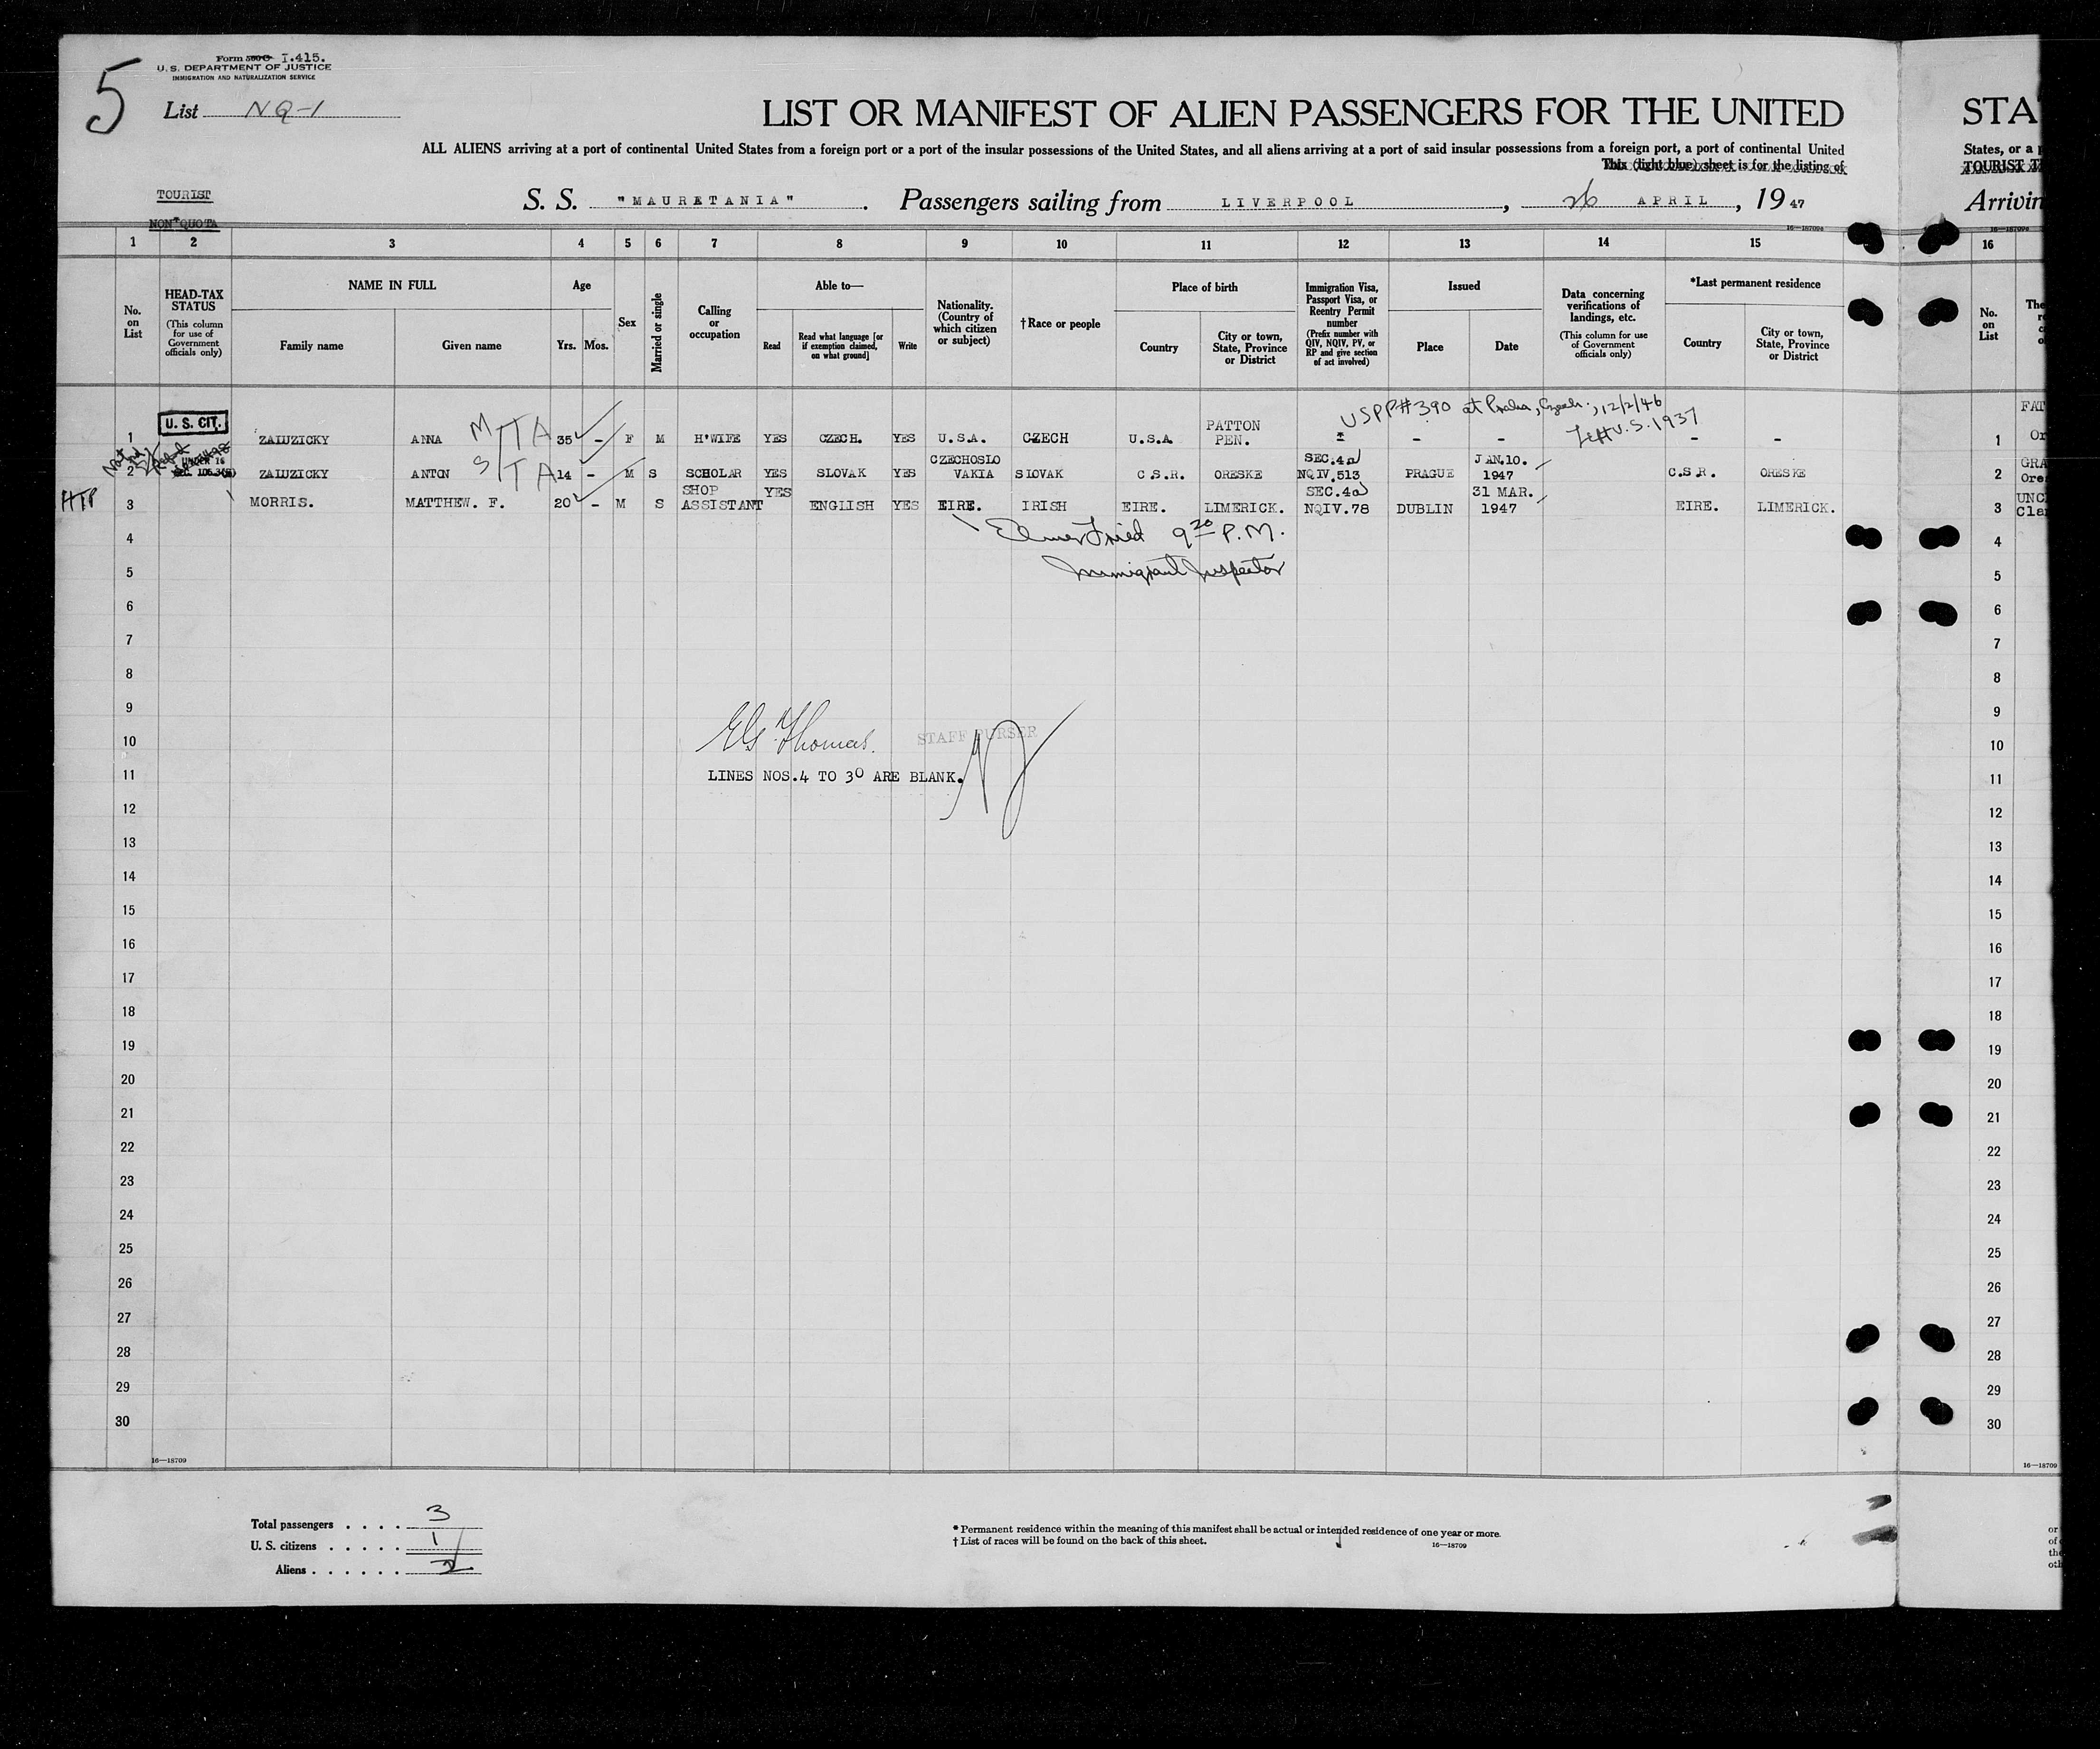 5
Form 500 G I.415.
U. S. DEPARTMENT OF JUSTICE
IMMIGRATION AND NATURALIZATION SERVICE
List NQ-1
LIST OR MANIFEST OF ALIEN PASSENGERS FOR THE UNITED
STA
ALL ALIENS arriving at a port of continental United States from a foreign port or a port of the insular possessions of the United States, and all aliens arriving at a port of said insular possessions from a foreign port, a port of continental United
States, or a p
This (light blue) sheet is for the listing of
TOURIST T
TOURIST
NON QUOTA
S. S. "MAURETANIA". Passengers sailing from LIVERPOOL, 26 APRIL, 19 47
Arrivin
16—18709a
1 2 3 4 5 6 7 8 9 10 11 12 13 14 15 16
No. on List
HEAD-TAX STATUS (This column for use of Government officials only)
NAME IN FULL
Family name
Given name
Age
Yrs. Mos.
Sex
Married or single
Calling or occupation
Able to—
Read
Read what language [or if exemption claimed, on what ground]
Write
Nationality. (Country of which citizen or subject)
†Race or people
Place of birth
Country
City or town, State, Province or District
Immigration Visa, Passport Visa, or Reentry Permit number (Prefix number with QIV, NQIV, PV, or RP and give section of act involved)
Issued
Place
Date
Data concerning verifications of landings, etc. (This column for use of Government officials only)
*Last permanent residence
Country
City or town, State, Province or District
No. on List
U. S. CIT.
USPP# 390 at Praha, Czech., 12/2/46
Left U.S. 1937
1 ZALUZICKY ANNA M TA 35 - F M H'WIFE YES CZECH. YES U.S.A. CZECH U.S.A PATTON PEN. - - - - - 1
UNDER 16
2 ZALUZICKY ANTON S TA 14 - M S SCHOLAR YES SLOVAK YES CZECHOSLO VAKIA SLOVAK C.S.R. ORESKE SEC.4a NQIV.513 PRAGUE JAN.10. 1947 C.S.R. ORESKE 2
3 MORRIS. MATTHEW. F. 20 - M S SHOP ASSISTANT YES ENGLISH YES EIRE. IRISH EIRE. LIMERICK. SEC.4a NQIV.78 DUBLIN 31 MAR. 1947 EIRE. LIMERICK. 3
4 Elmer Fried 9 20 P.M. 4
5 Immigrant Inspector 5
6 6
7 7
8 8
9 9
10 EG Thomas. STAFF PURSER 10
11 LINES NOS.4 TO 30 ARE BLANK. 11
12 12
13 13
14 14
15 15
16 16
17 17
18 18
19 19
20 20
21 21
22 22
23 23
24 24
25 25
26 26
27 27
28 28
29 29
30 30
16—18709
16—18709
Total passengers . . . . 3
U. S. citizens . . . . . 1
Aliens . . . . . . 2
* Permanent residence within the meaning of this manifest shall be actual or intended residence of one year or more.
† List of races will be found on the back of this sheet.
16—18709